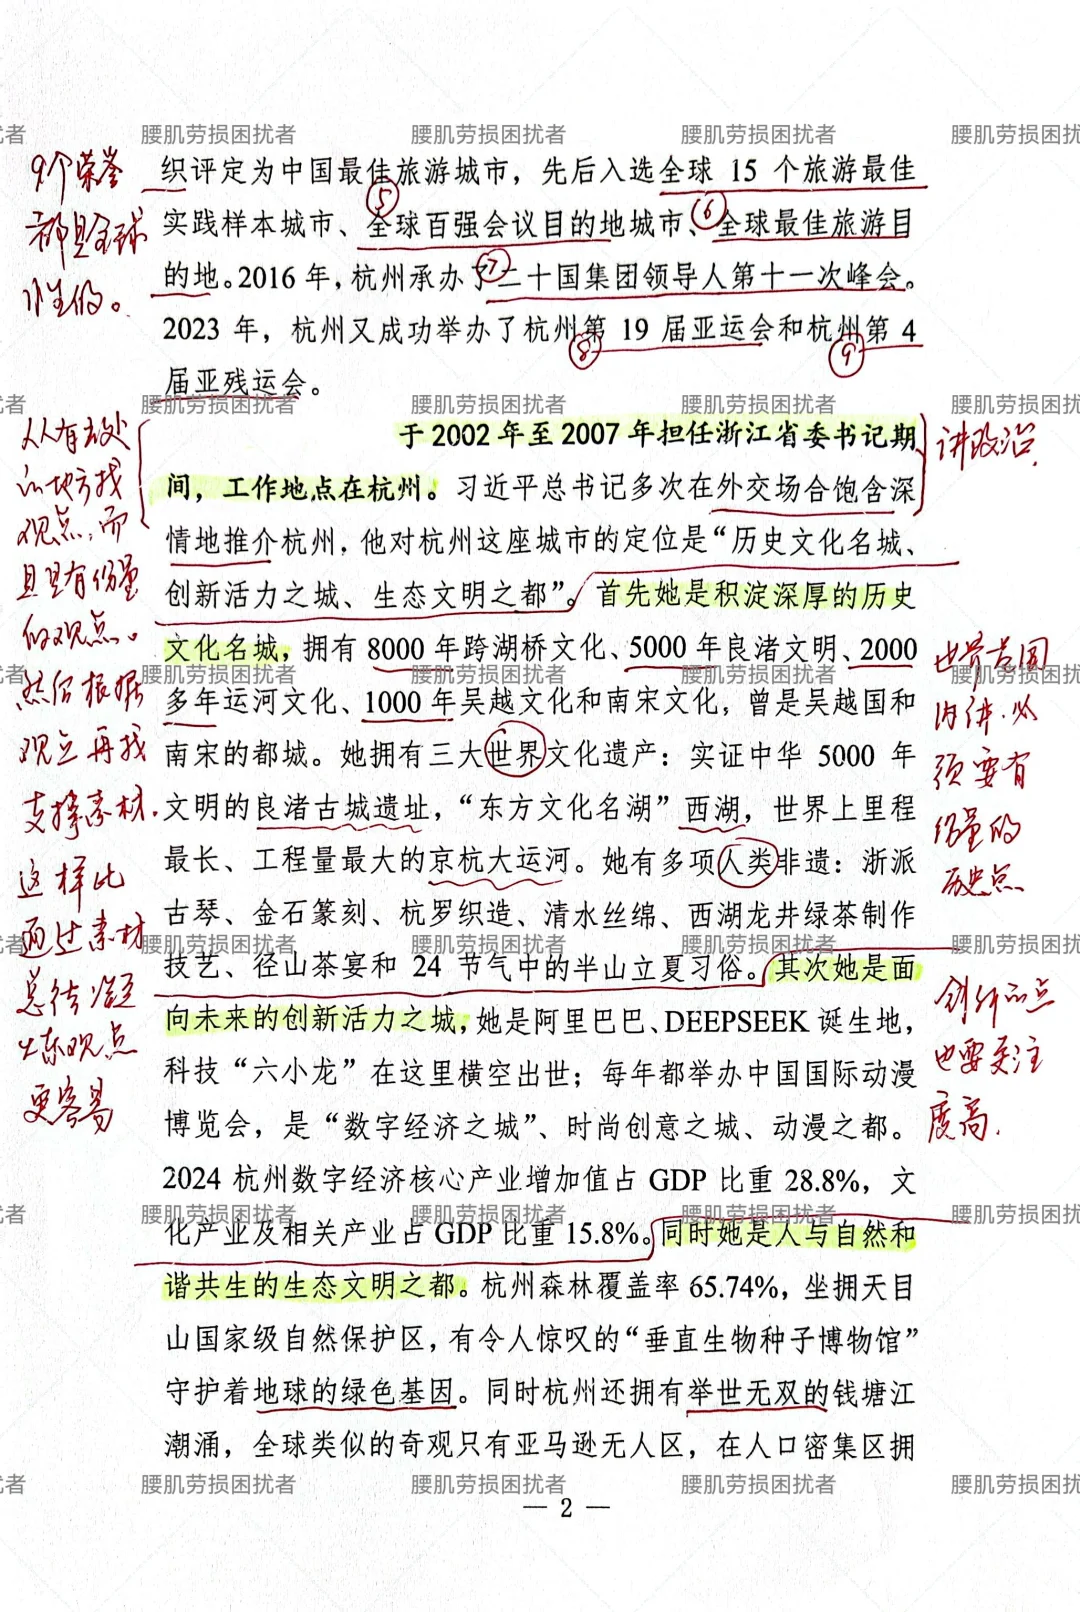 织评定为中国最佳旅游城市，先后入选全球 15 个旅游最佳
实践样本城市、全球百强会议目的地城市、全球最佳旅游目
的地。2016 年，杭州承办了二十国集团领导人第十一次峰会。
2023 年，杭州又成功举办了杭州第 19 届亚运会和杭州第 4
届亚残运会。
于 2002 年至 2007 年担任浙江省委书记期
间，工作地点在杭州。习近平总书记多次在外交场合饱含深
情地推介杭州，他对杭州这座城市的定位是“历史文化名城、
创新活力之城、生态文明之都”。首先她是积淀深厚的历史
文化名城，拥有 8000 年跨湖桥文化、5000 年良渚文明、2000
多年运河文化、1000 年吴越文化和南宋文化，曾是吴越国和
南宋的都城。她拥有三大世界文化遗产：实证中华 5000 年
文明的良渚古城遗址，“东方文化名湖”西湖，世界上里程
最长、工程量最大的京杭大运河。她有多项人类非遗：浙派
古琴、金石篆刻、杭罗织造、清水丝绵、西湖龙井绿茶制作
技艺、径山茶宴和 24 节气中的半山立夏习俗。其次她是面
向未来的创新活力之城，她是阿里巴巴、DEEPSEEK 诞生地，
科技“六小龙”在这里横空出世；每年都举办中国国际动漫
博览会，是“数字经济之城”、时尚创意之城、动漫之都。
2024 杭州数字经济核心产业增加值占 GDP 比重 28.8%，文
化产业及相关产业占 GDP 比重 15.8%。同时她是人与自然和
谐共生的生态文明之都。杭州森林覆盖率 65.74%，坐拥天目
山国家级自然保护区，有令人惊叹的“垂直生物种子博物馆”
守护着地球的绿色基因。同时杭州还拥有举世无双的钱塘江
潮涌，全球类似的奇观只有亚马逊无人区，在人口密集区拥
— 2 —
⑤
⑥
⑦
⑧
⑨
9个荣誉
都是全球
性的。
从有出处
的地方找
观点，而
且是有份量
的观点。
然后根据
观点再找
支撑素材.
这样比
通过素材
总结凝
炼观点
更容易
讲政治.
世界范围
内讲.必
须要有
份量的
历史点
创新的点
也要关注
度高.
腰肌劳损困扰者